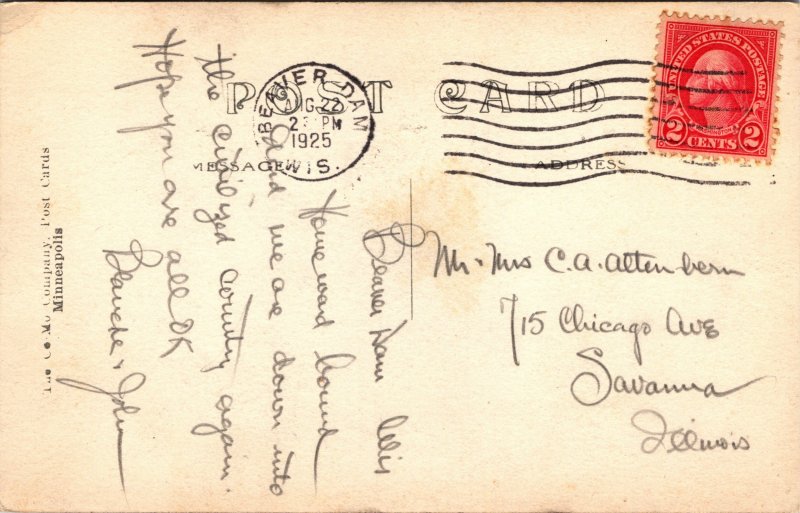 POST CARD
BEAVER DAM
AUG 22
PM
1925
WIS.
UNITED STATES POSTAGE
2 CENTS 2
MESSAGE
ADDRESS
Beaver Dam Wis
Homeward bound
and we are down into
the civilized country again.
Hope you are all OK
Blanche & John
Mr. & Mrs C. A. Altenbern
715 Chicago Ave
Savanna
Illinois
Company, Post Cards
Minneapolis